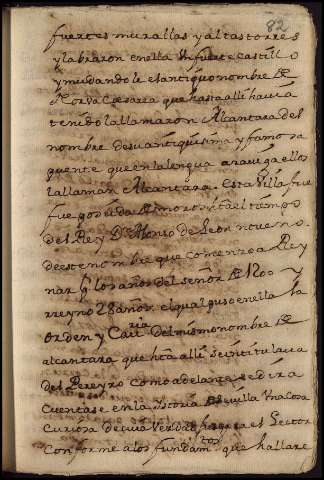 82
fuertes murallas y altas torres
y labraron en ella Un fuerte castillo
y mudandole el antiguo nombre de
Norva Caesarea que hasta alli havia
tenido la llamaron Alcantara del
nombre de su antiquisima y famosa
puente que en la lengua araviga ellos
la llaman Alcantara. Esta Villa fue
fue poseida de moros hta el tiempo
del Rey Dn Alonso de Leon noveno
de este nombre que comenzo a Rey
nar por los años del señor de y
rreyno 28 años. el qual puso en ella la
orden y Cavria del mismo nombre de
alcantara que hta alli se intitulava
del Pereyro como adelante se dira
Cuentase en la istoria de sevilla Una Cosa
Curiosa de cuia Verdad el Lector
Conforme a los fundamtos que hallare